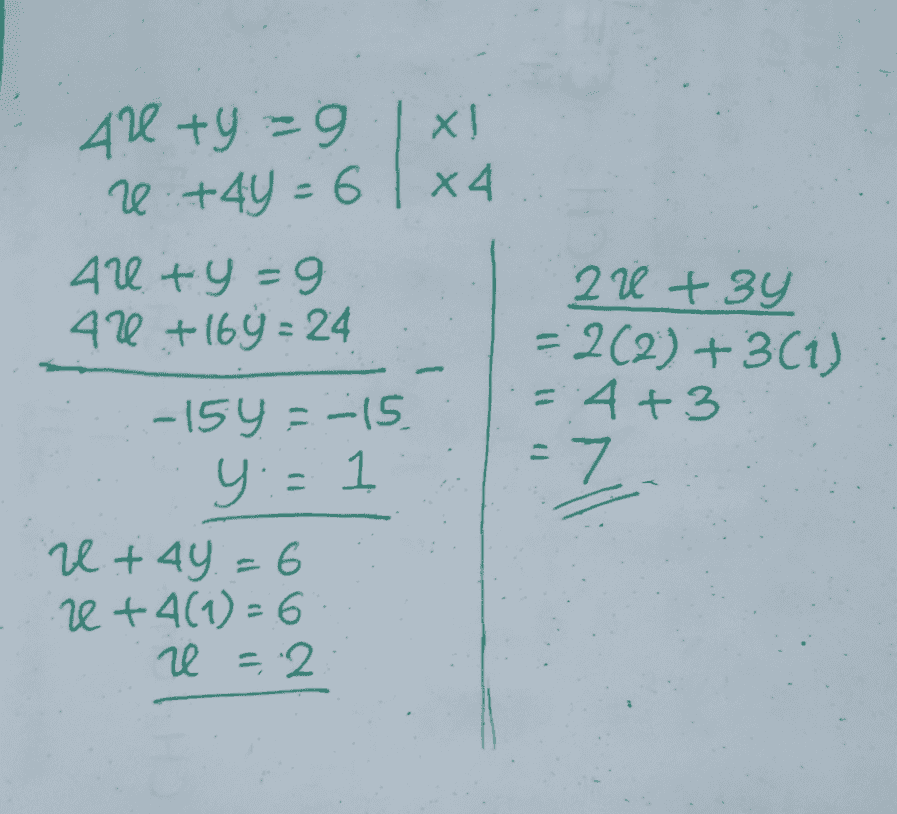 4x + y = 9 | ×1
x + 4y = 6 | ×4
4x + y = 9
4x + 16y = 24
-
-15y = -15
y = 1
x + 4y = 6
x + 4(1) = 6
x = 2
2x + 3y
= 2(2) + 3(1)
= 4 + 3
= 7